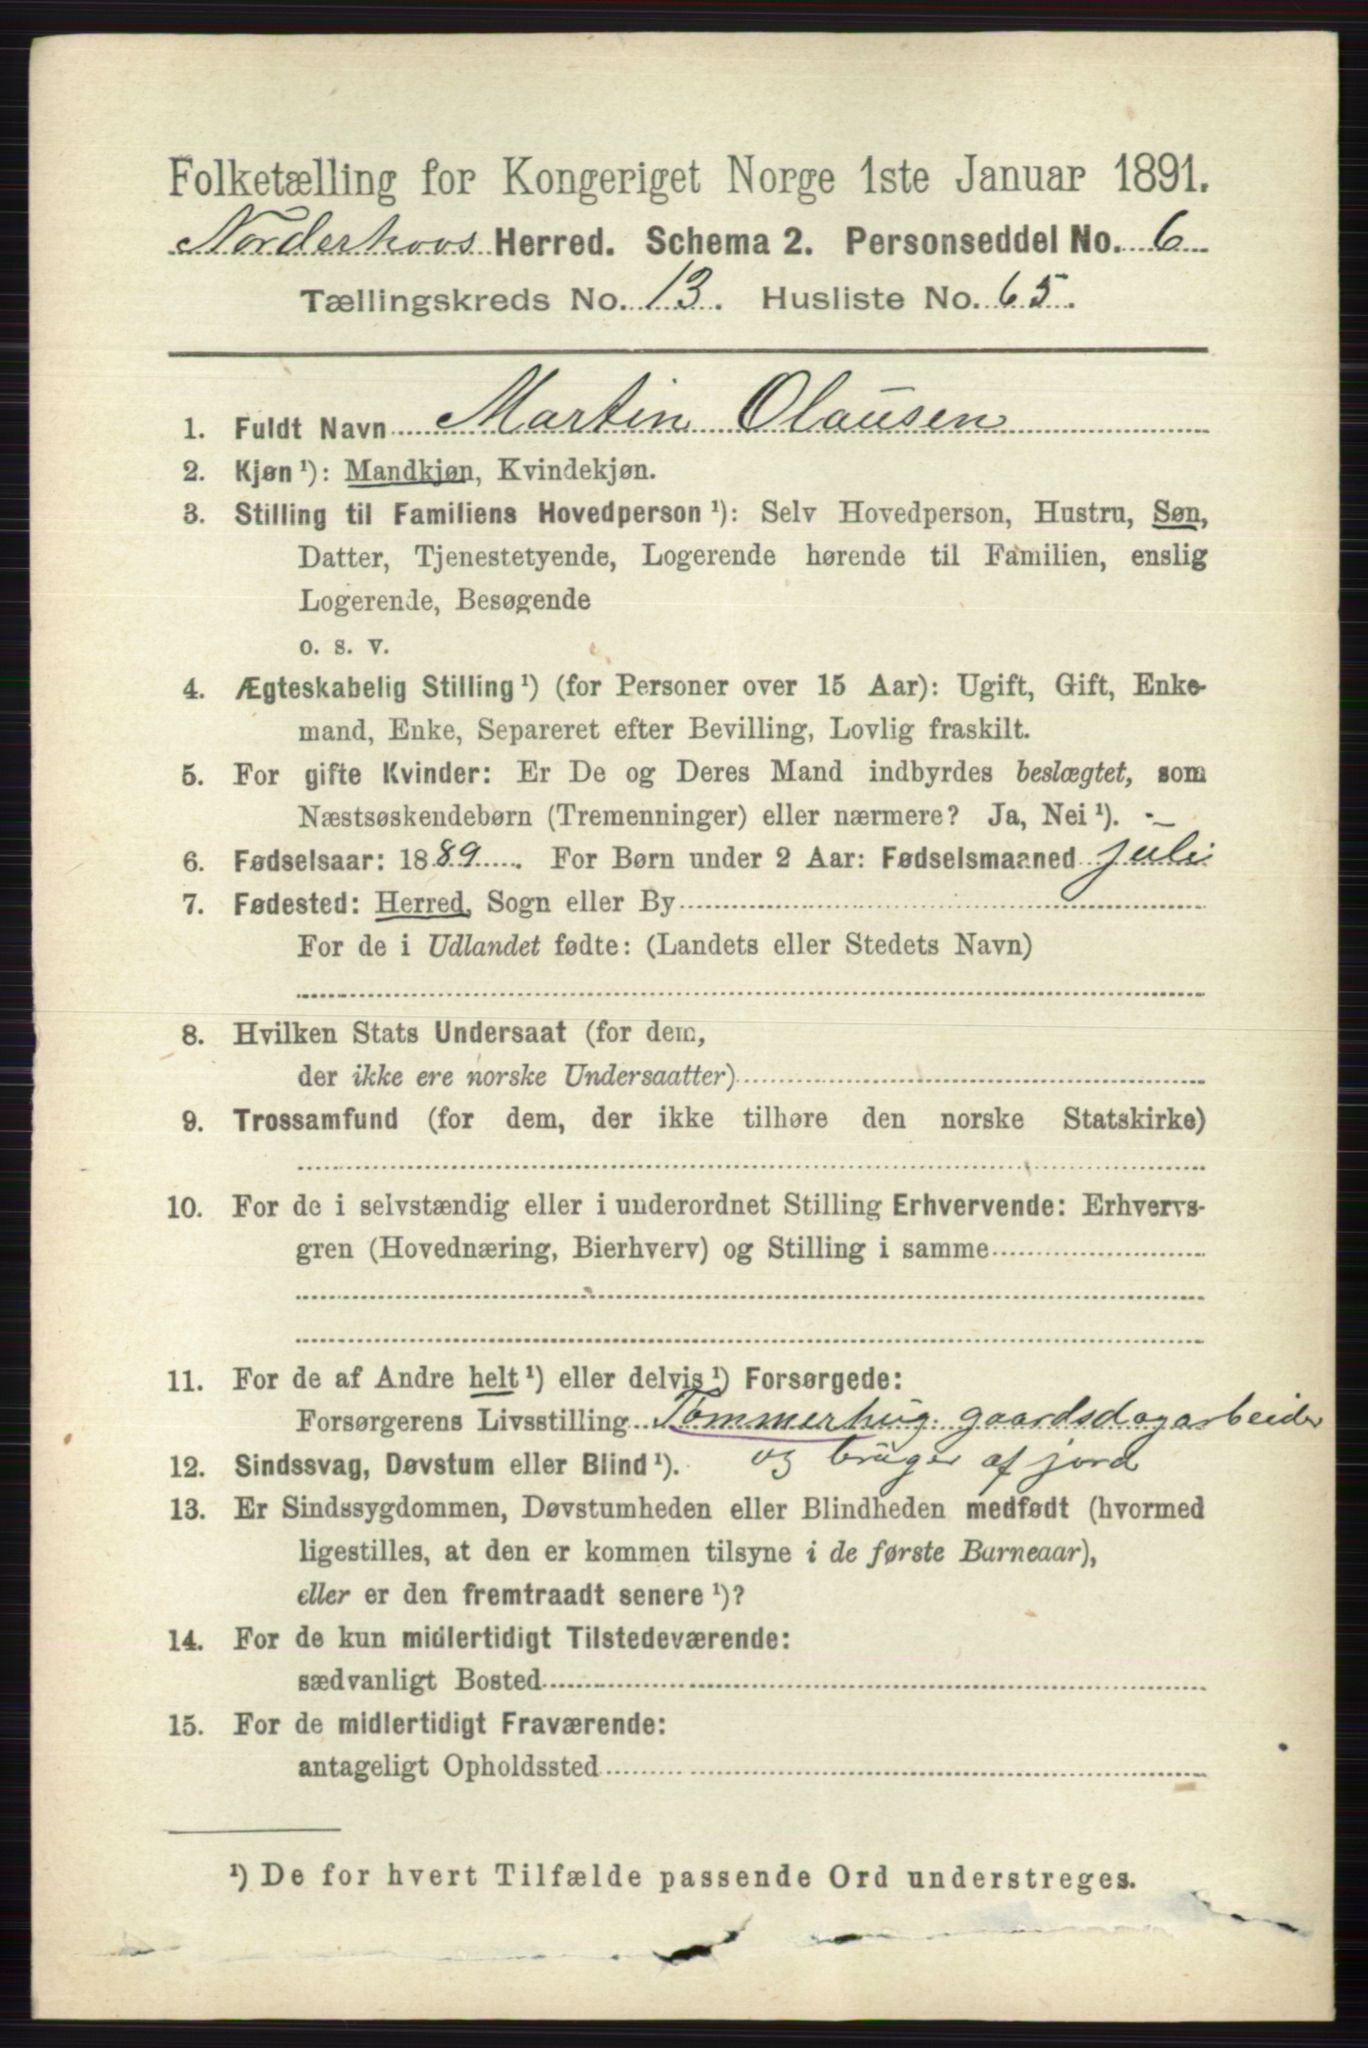 Folketælling for Kongeriget Norge 1ste Januar 1891.
Norderhovs Herred. Schema 2. Personseddel No. 6
Tællingskreds No. 13. Husliste No. 65.
1. Fuldt Navn Martin Olausen
2. Kjøn ¹): Mandkjøn, Kvindekjøn.
3. Stilling til Familiens Hovedperson ¹): Selv Hovedperson, Hustru, Søn,
Datter, Tjenestetyende, Logerende hørende til Familien, enslig
Logerende, Besøgende
o. s. v.
4. Ægteskabelig Stilling ¹) (for Personer over 15 Aar): Ugift, Gift, Enke-
mand, Enke, Separeret efter Bevilling, Lovlig fraskilt.
5. For gifte Kvinder: Er De og Deres Mand indbyrdes beslægtet, som
Næstsøskendebørn (Tremenninger) eller nærmere? Ja, Nei ¹). -
6. Fødselsaar: 1889. For Børn under 2 Aar: Fødselsmaaned juli
7. Fødested: Herred, Sogn eller By
For de i Udlandet fødte: (Landets eller Stedets Navn)
8. Hvilken Stats Undersaat (for dem,
der ikke ere norske Undersaatter)
9. Trossamfund (for dem, der ikke tilhøre den norske Statskirke)
10. For de i selvstændig eller i underordnet Stilling Erhvervende: Erhvervs-
gren (Hovednæring, Bierhverv) og Stilling i samme
11. For de af Andre helt ¹) eller delvis ¹) Forsørgede:
Forsørgerens Livsstilling Tømmerhug. gaardsdagarbeider
og bruger af jord
12. Sindssvag, Døvstum eller Blind ¹).
13. Er Sindssygdommen, Døvstumheden eller Blindheden medfødt (hvormed
ligestilles, at den er kommen tilsyne i de første Barneaar),
eller er den fremtraadt senere ¹)?
14. For de kun midlertidigt Tilstedeværende:
sædvanligt Bosted
15. For de midlertidigt Fraværende:
antageligt Opholdssted
¹) De for hvert Tilfælde passende Ord understreges.